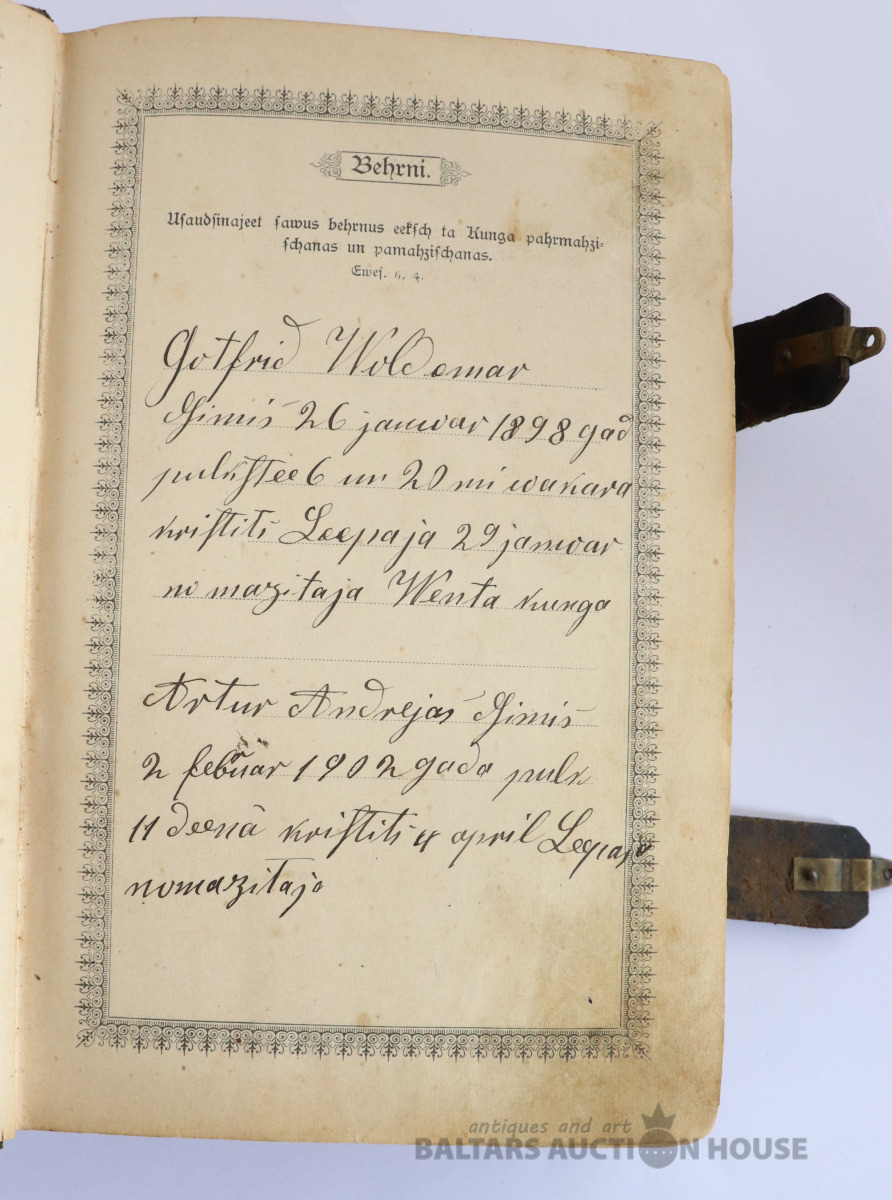 Behrni.
Uſaudſinajeet ſawus behrnus eekſch ta Kunga pahrmahzi-
ſchanas un pamahziſchanas.
Eweſ. 6, 4.
Gotfrid Woldemar
Simis 26 januar 1898 gad
pulkſtee 6 un 20 mi wakara
kriſtits Leepaja 29 januar
no mazitaja Wenta kunga
Artur Andrejas Simis
2 februar 1902 gada pulk
11 deenā kriſtits 4 april Leepaja
no mazitaja
antiques and art
BALTARS AUCTION HOUSE